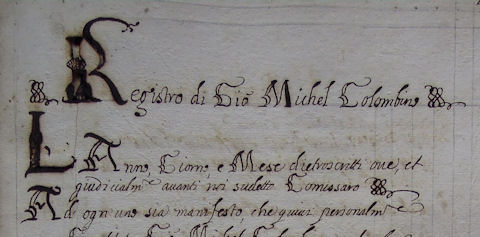 Registro di Gio Michel Colombino
L Anno, Giorno, e Mese dietroscritti ove, et
giudicialm.e avanti noi sudetto Comissaro
Ad ogn uno sia manifesto, che quivi personalm.e